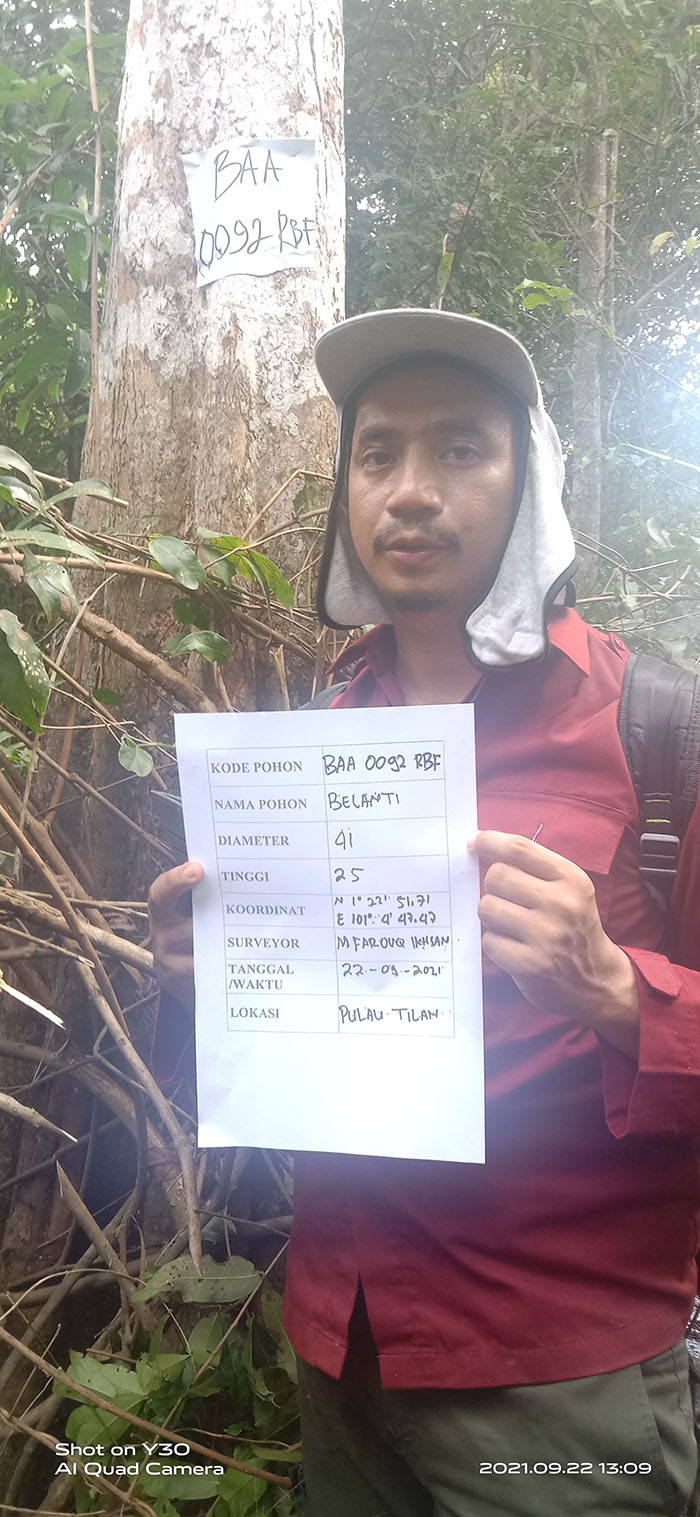 BAA
0092 RBF
KODE POHON BAA 0092 RBF
NAMA POHON BELANTI
DIAMETER 41
TINGGI 25
KOORDINAT N 1° 22' 51.71
E 101° 4' 47.47
SURVEYOR M FAROUQ IKHSAN
TANGGAL
/WAKTU 22-09-2021
LOKASI PULAU TILAN
Shot on Y30
AI Quad Camera
2021.09.22 13:09